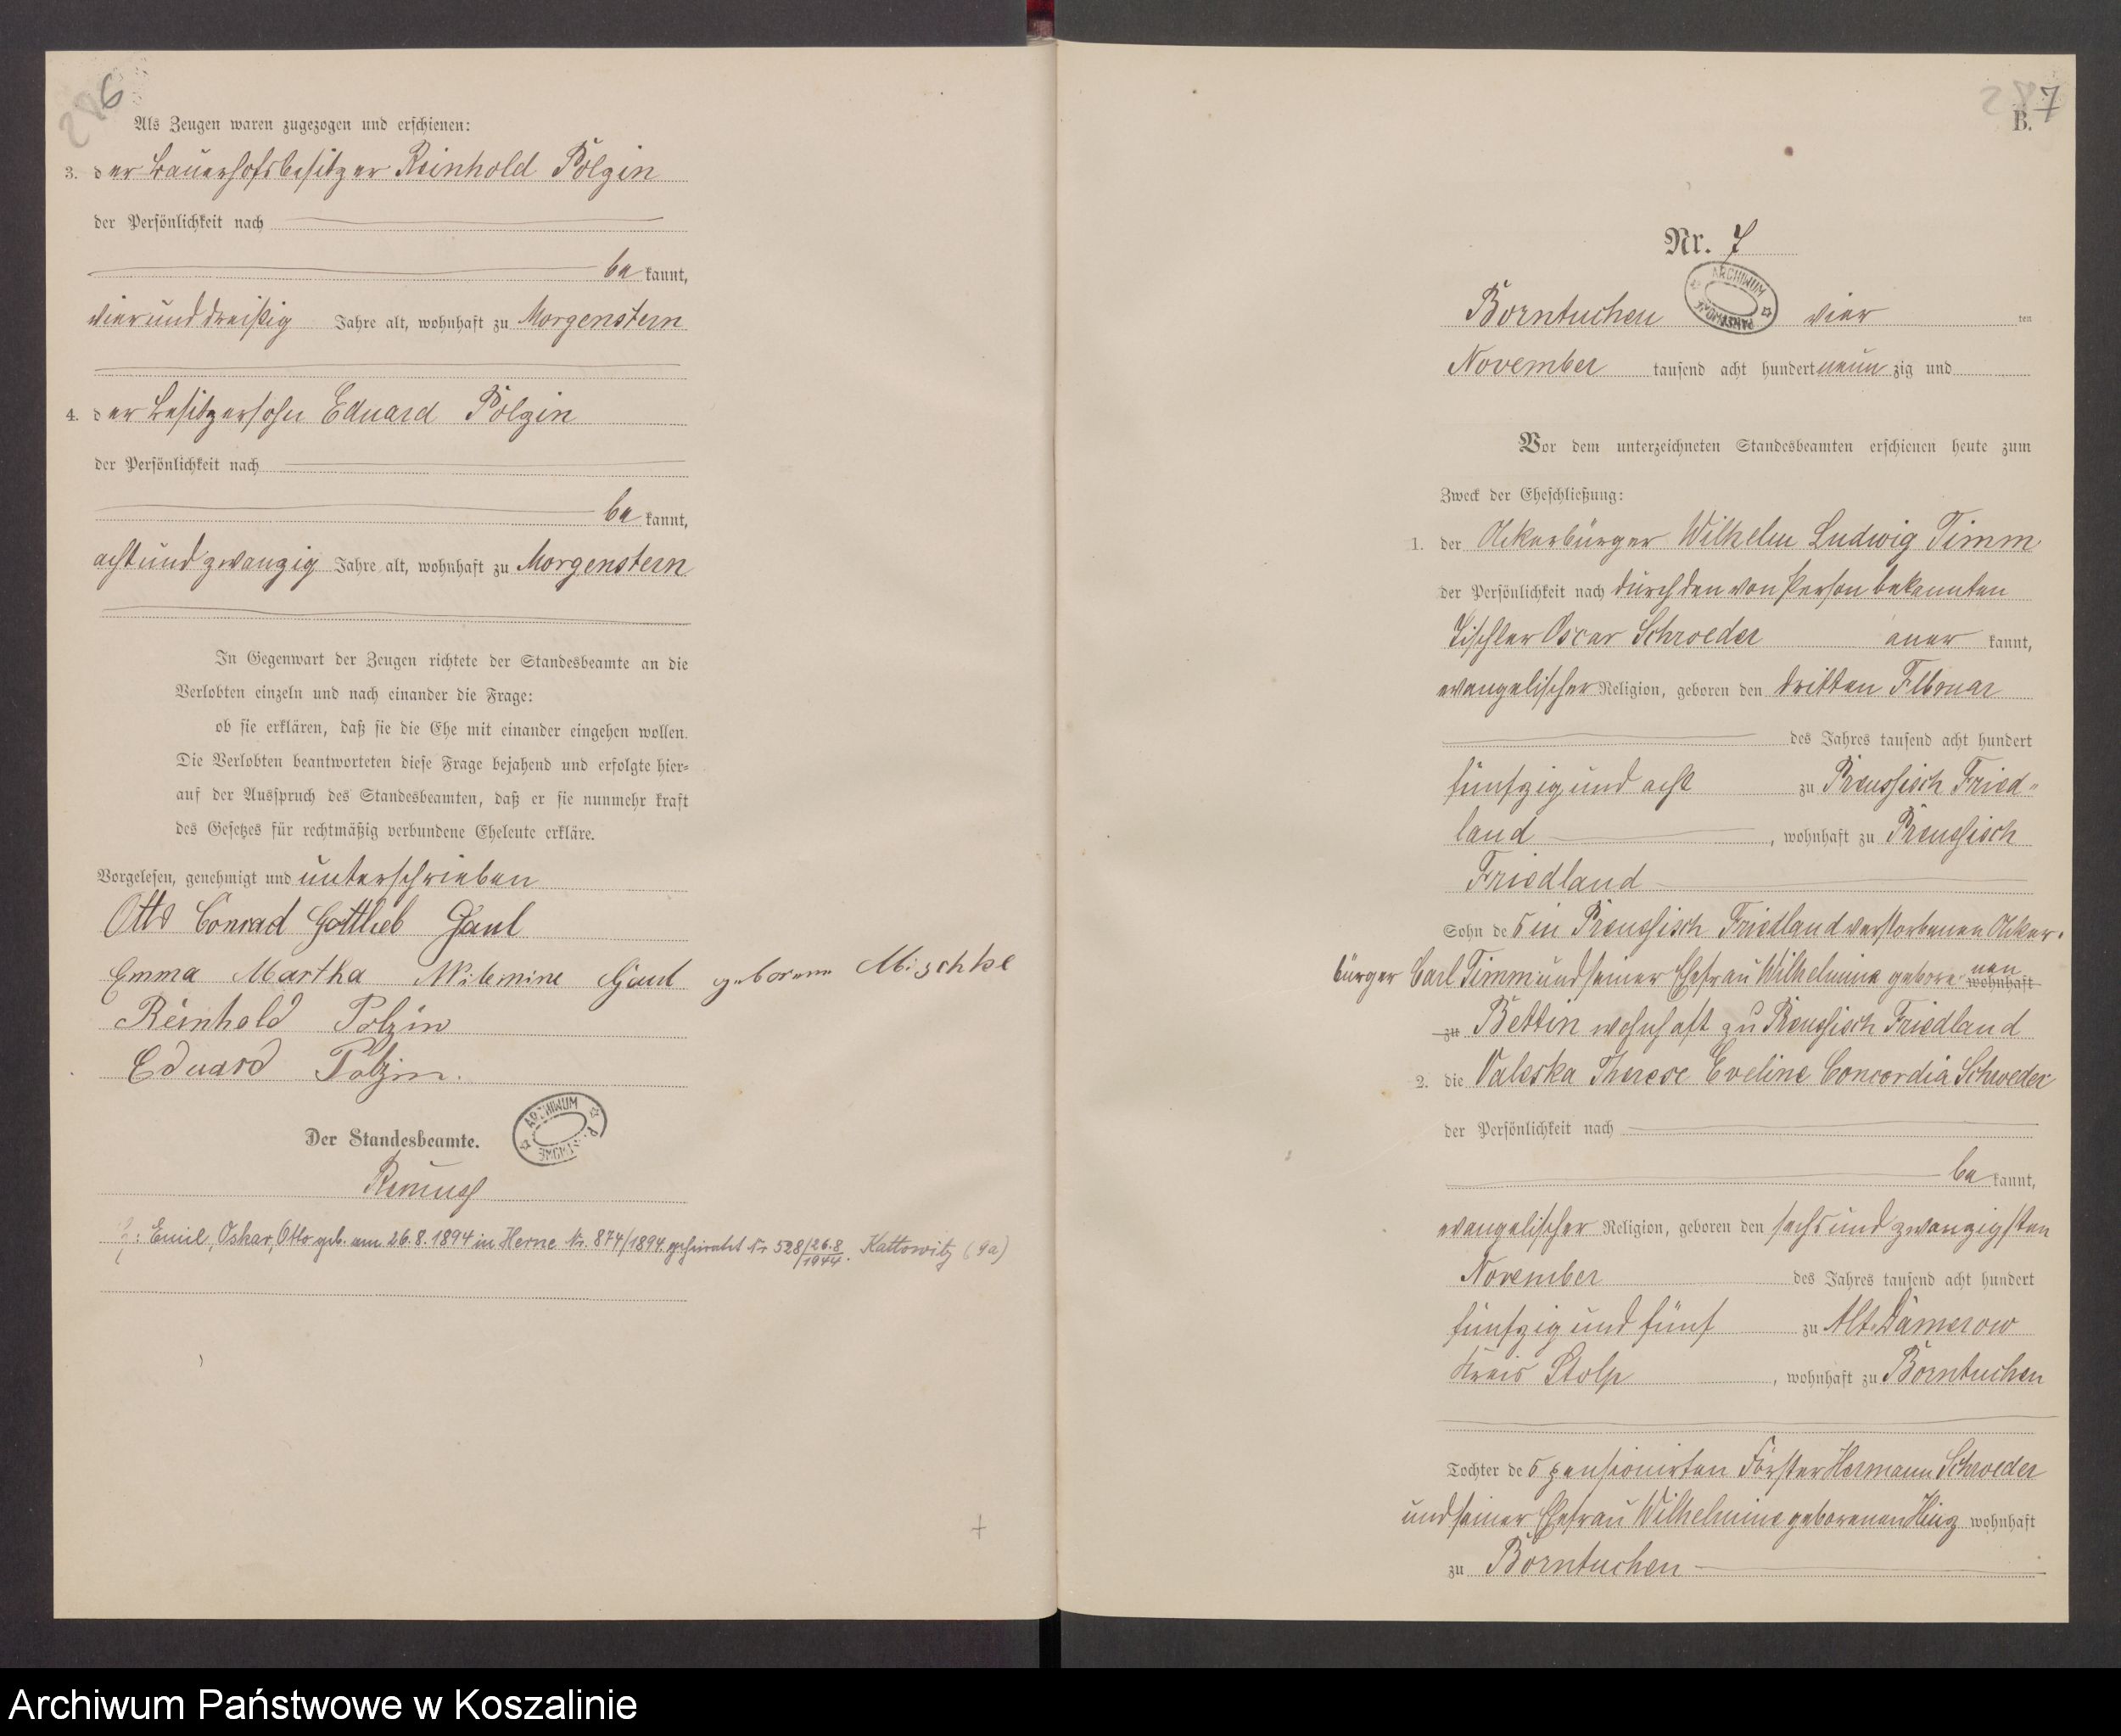 6
Als Zeugen waren zugezogen und erschienen:
3. der Bauerhofsbesitzer Reinhold Polzin
der Persönlichkeit nach
bekannt,
vierunddreißig Jahre alt, wohnhaft zu Morgenstern
4. der Besitzersohn Eduard Polzin
der Persönlichkeit nach
bekannt,
achtundzwanzig Jahre alt, wohnhaft zu Morgenstern
In Gegenwart der Zeugen richtete der Standesbeamte an die
Verlobten einzeln und nach einander die Frage:
ob sie erklären, daß sie die Ehe mit einander eingehen wollen.
Die Verlobten beantworteten diese Frage bejahend und erfolgte hier-
auf der Ausspruch des Standesbeamten, daß er sie nunmehr kraft
des Gesetzes für rechtmäßig verbundene Eheleute erkläre.
Vorgelesen, genehmigt und unterschrieben
Otto Conrad Gottlieb Gaul
Emma Martha Wilemine Gaul geborene Mischke
Reinhold Polzin
Eduard Polzin.
ARCHIWUM
Der Standesbeamte.
: Emil, Oskar, Otto geb. am 26.8.1894 in Herne Nr. 874/1894. geheiratet Nr 528/26.8/1944. Kattowitz (9a)
7
B.
Nr. 7
ARCHIWUM PAŃSTWOWE
Borntuchen vier ten
November tausend acht hundert neunzig und
Vor dem unterzeichneten Standesbeamten erschienen heute zum
Zweck der Eheschließung:
1. der Ackerbürger Wilhelm Ludwig Timm
der Persönlichkeit nach durch den von Person bekannten
Tischler Oscar Schroeder anerkannt,
evangelischer Religion, geboren den dritten Februar
des Jahres tausend acht hundert
fünfzig und acht zu Preussisch Fried-
land, wohnhaft zu Preussisch
Friedland
Sohn des in Preussisch Friedland verstorbenen Acker-
bürger Carl Timm und seiner Ehefrau Wilhelmine geborenen wohnhaft
zu Bettin wohnhaft zu Preussisch Friedland
2. die Valeska Therese Eveline Concordia Schroeder
der Persönlichkeit nach
bekannt,
evangelischer Religion, geboren den sechsundzwanzigsten
November des Jahres tausend acht hundert
fünfzig und fünf zu Alt-Damerow
Kreis Stolp, wohnhaft zu Borntuchen
Tochter des pensionirten Förster Hermann Schroeder
und seiner Ehefrau Wilhelmine geborenen Hinz wohnhaft
zu Borntuchen
Archiwum Państwowe w Koszalinie